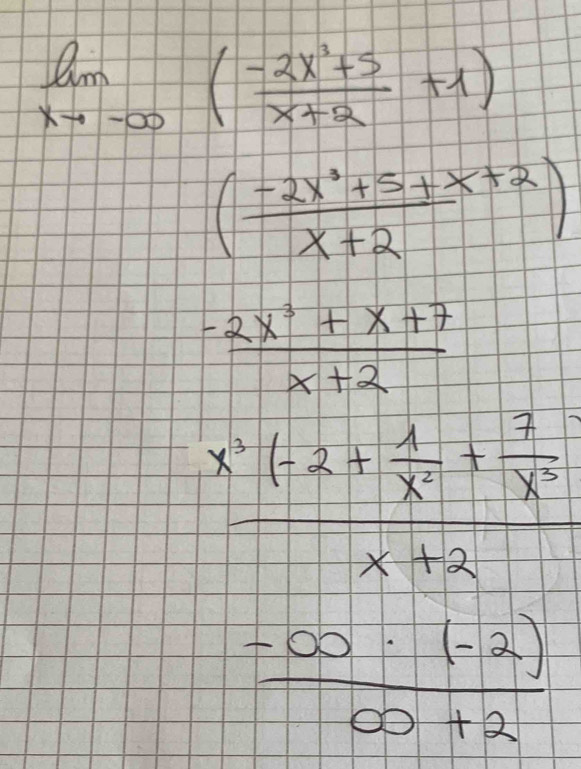 lim x→ -∞ ( (-2x³+5)/(x+2) +1)
( (-2x³+5+x+2)/(x+2) )
(-2x³ + x+7)/(x+2)
(x³ (-2 + 1/x² + 7/x³))/(x +2)
(-∞ · (-2))/(∞ +2)